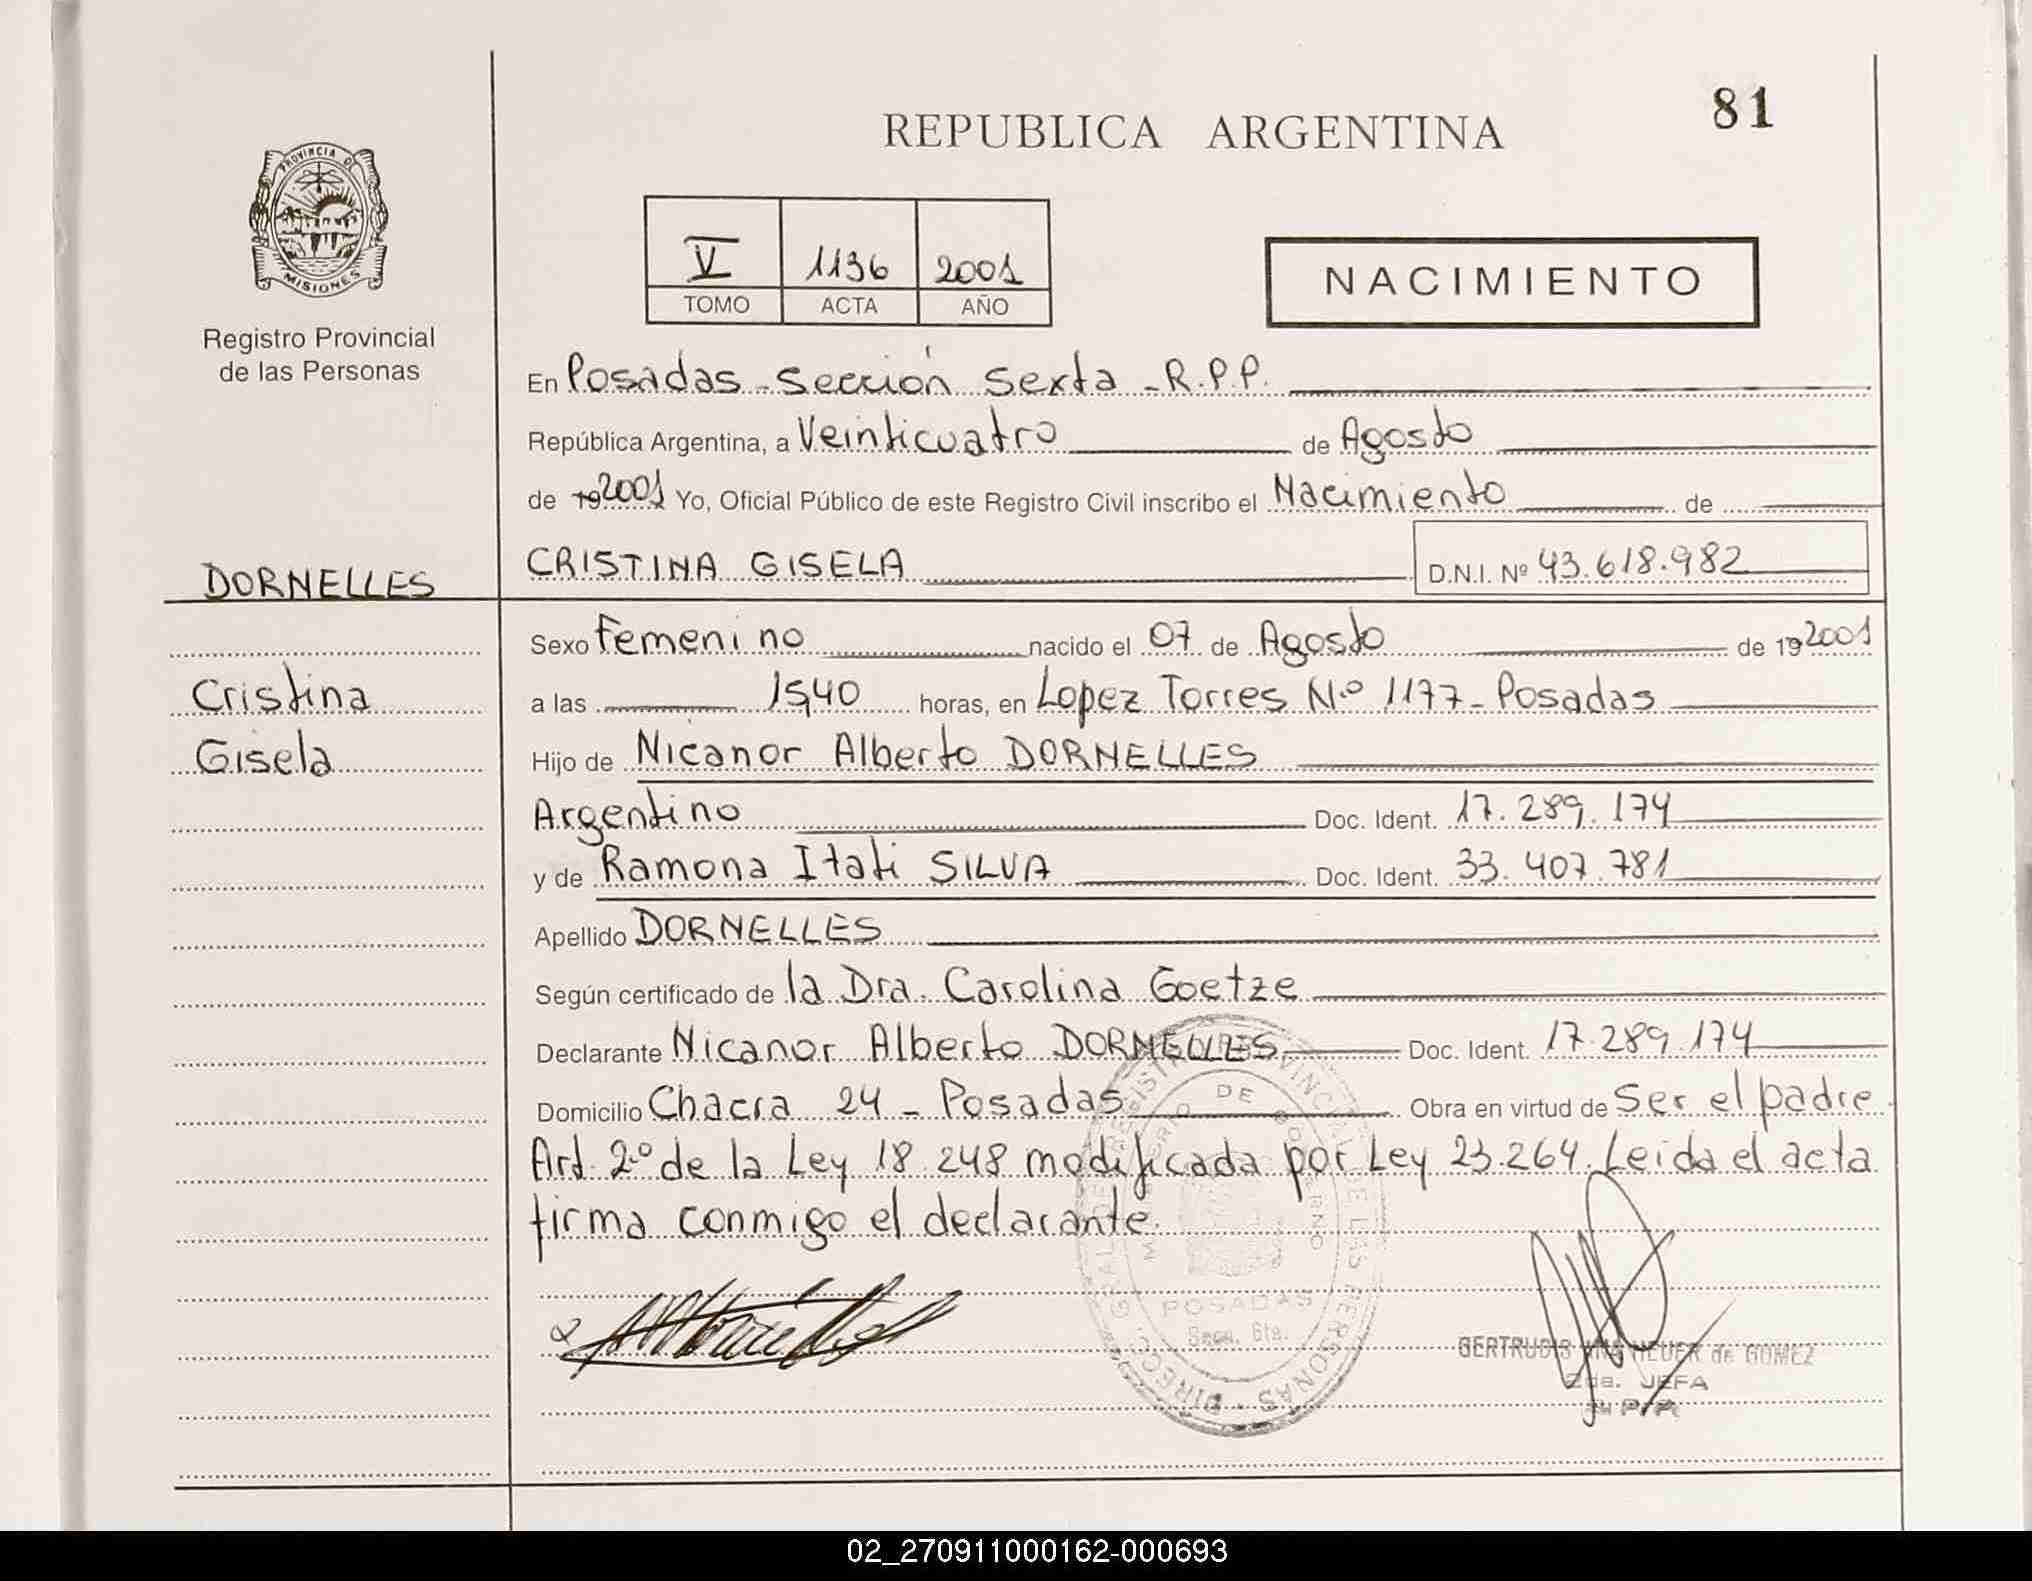 81
REPUBLICA ARGENTINA
PROVINCIA DE
MISIONES
Registro Provincial
de las Personas
V 1136 2001
TOMO ACTA AÑO
NACIMIENTO
En Posadas - Sección Sexta - R.P.P.
República Argentina, a Veinticuatro de Agosto
de 19 2001 Yo, Oficial Público de este Registro Civil inscribo el Nacimiento de
DORNELLES
CRISTINA GISELA D.N.I. Nº 43.618.982
Cristina
Gisela
Sexo Femenino nacido el 07 de Agosto de 19 2001
a las 15,40 horas, en Lopez Torres Nº 1177 - Posadas
Hijo de Nicanor Alberto DORNELLES
Argentino Doc. Ident. 17.289.174
y de Ramona Itati SILVA Doc. Ident. 33.407.781
Apellido DORNELLES
Según certificado de la Dra. Carolina Goetze
Declarante Nicanor Alberto DORNELLES Doc. Ident. 17.289.174
Domicilio Chacra 24 - Posadas Obra en virtud de Ser el padre
Art. 2º de la Ley 18.248 modificada por Ley 23.264. Leida el acta
firma conmigo el declarante.
DIREC. GRAL. DE REGISTRO PROVINCIAL DE LAS PERSONAS
DE GOBIERNO
POSADAS
Secc. 6ta.
GERTRUDIS ANA HEUER de GOMEZ
2da. JEFA
02_270911000162-000693